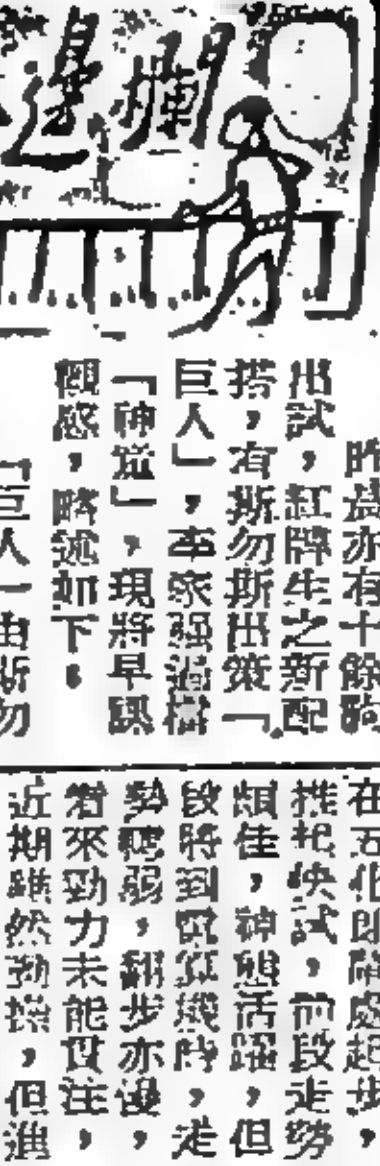 欄邊
昨晨亦有十餘駒
出試，紅牌生之新配
搭，有斯勿斯出策「
巨人」，韋家强過樹
「神道」，現將早課
觀感，略述如下。
「巨人」由斯勿
在五化郎館處起步，
推祀快試，前段走勢
頗佳，神態活躍，但
段將到電算機時，走
勢轉弱，翻步亦慢，
看來勁力未能貫注，
近期雖然勤操，但進